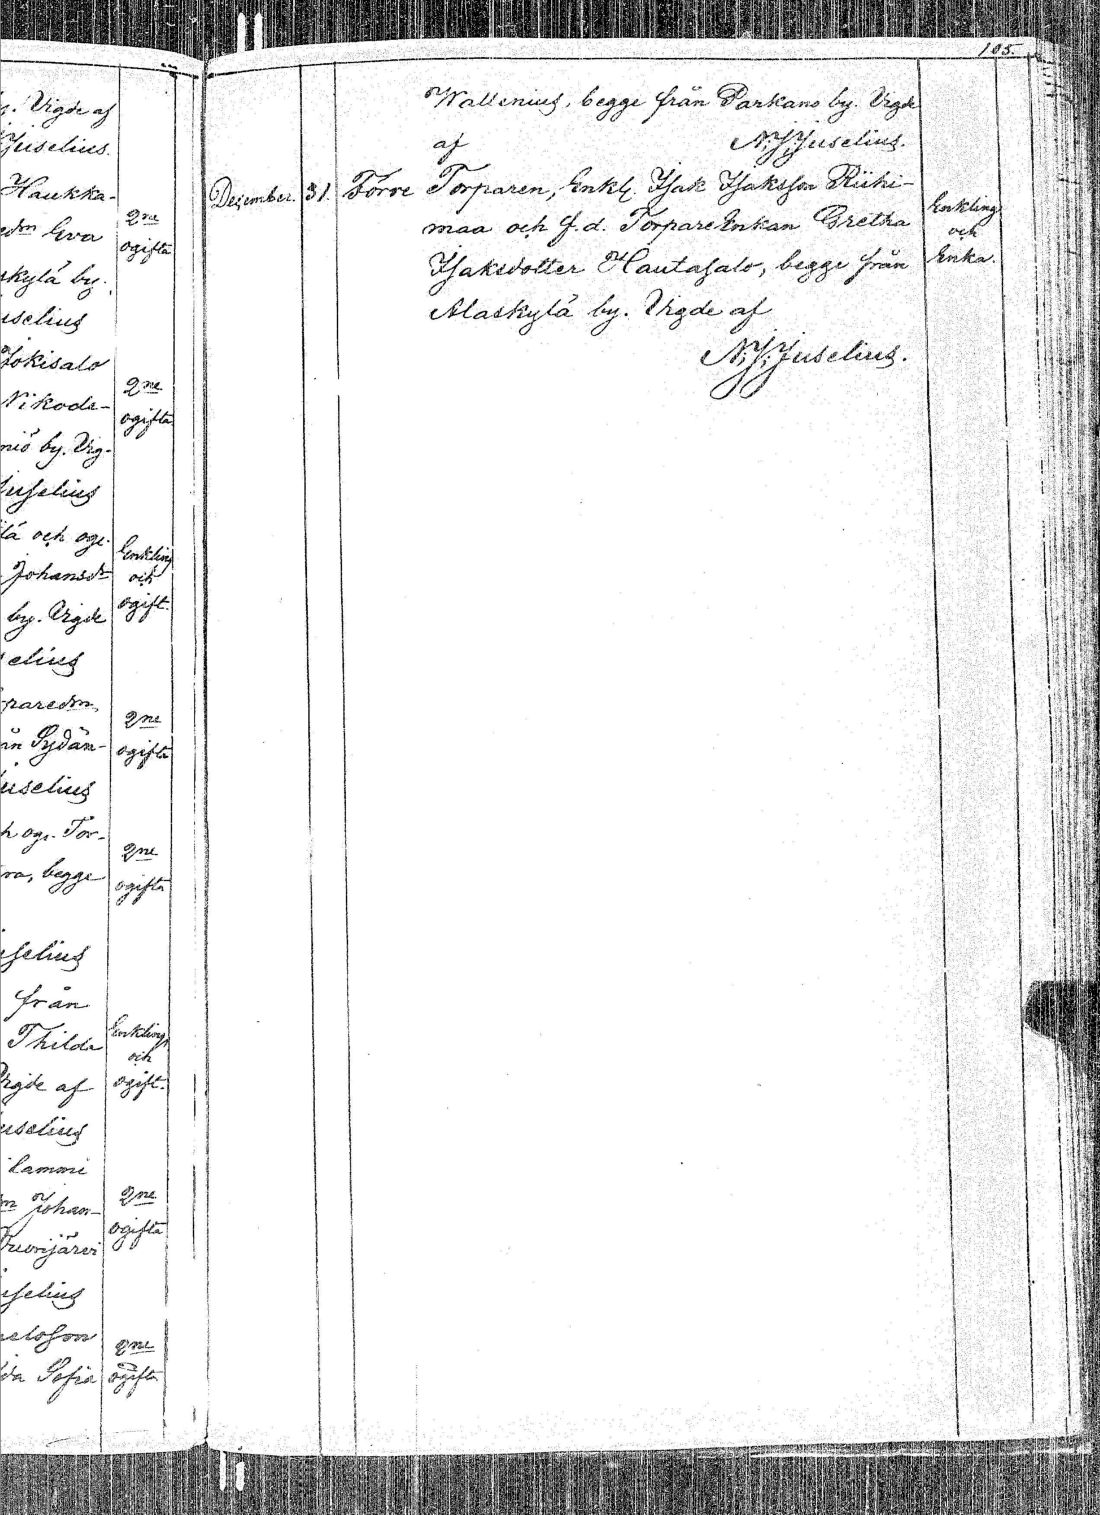 . Vigde af
Juselius.
Haukka-
Eva
skylä by.
uselius
Jokisalo
Nikode-
by. Vig-
Juselius
och oge.
Johansdr
by. Vigde
selius
Sydän-
Juselius
h oge. Tor-
begge
uselius
från
Thilda
Vigde af
Juselius
Lammi
Johan-
uselius
da Sofia
2ne
ogifta
2ne
ogifta
Enkling
och
ogift.
2ne
ogifta
2ne
ogifta
Enkling
och
ogift.
2ne
ogifta
2ne
ogifta
105.
Wallenius, begge från Parkano by. Vigde
af N. J. Juselius.
December. 31. Förre Torparen, Enkl. Isak Isaksson Riihi-
maa och f.d. TorpareEnkan Gretha
Isaksdotter Hautasalo, begge från
Alaskylä by. Vigde af
N. J. Juselius.
Enkling
och
Enka.